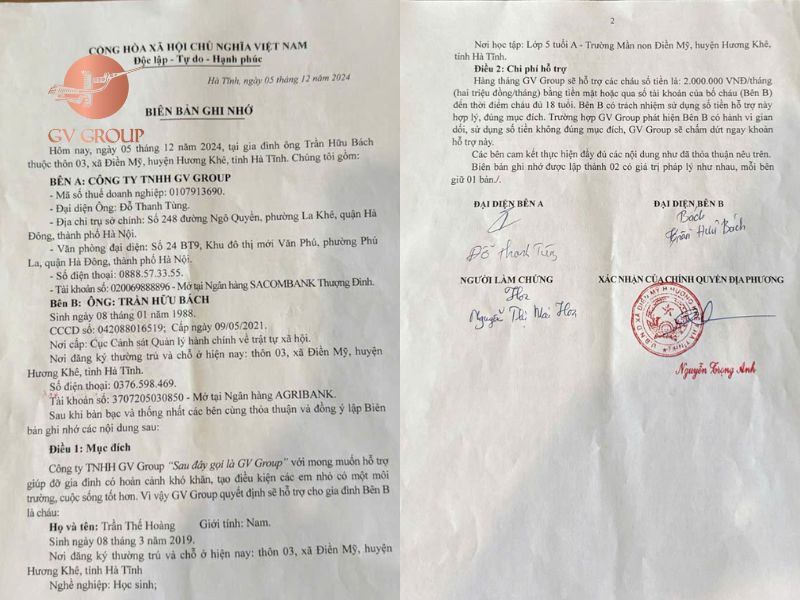 CỘNG HÒA XÃ HỘI CHỦ NGHĨA VIỆT NAM
Độc lập - Tự do - Hạnh phúc
Hà Tĩnh, ngày 05 tháng 12 năm 2024
GV GROUP
BIÊN BẢN GHI NHỚ
Hôm nay, ngày 05 tháng 12 năm 2024, tại gia đình ông Trần Hữu Bách
thuộc thôn 03, xã Điền Mỹ, huyện Hương Khê, tỉnh Hà Tĩnh. Chúng tôi gồm:
BÊN A: CÔNG TY TNHH GV GROUP
- Mã số thuế doanh nghiệp: 0107913690.
- Đại diện Ông: Đỗ Thanh Tùng.
- Địa chỉ trụ sở chính: Số 248 đường Ngô Quyền, phường La Khê, quận Hà
Đông, thành phố Hà Nội.
- Văn phòng đại diện: Số 24 BT9, Khu đô thị mới Văn Phú, phường Phú
La, quận Hà Đông, thành phố Hà Nội.
- Số điện thoại: 0888.57.33.55.
- Tài khoản số: 020069888896 - Mở tại Ngân hàng SACOMBANK Thượng Đình.
Bên B: ÔNG: TRẦN HỮU BÁCH
Sinh ngày 08 tháng 01 năm 1988.
CCCD số: 042088016519; Cấp ngày 09/05/2021.
Nơi cấp: Cục Cảnh sát Quản lý hành chính về trật tự xã hội.
Nơi đăng ký thường trú và chỗ ở hiện nay: thôn 03, xã Điền Mỹ, huyện
Hương Khê, tỉnh Hà Tĩnh.
Số điện thoại: 0376.598.469.
Tài khoản số: 3707205030850 - Mở tại Ngân hàng AGRIBANK.
Sau khi bàn bạc và thống nhất các bên cùng thỏa thuận và đồng ý lập Biên
bản ghi nhớ các nội dung sau:
Điều 1: Mục đích
Công ty TNHH GV Group “Sau đây gọi là GV Group” với mong muốn hỗ trợ
giúp đỡ gia đình có hoàn cảnh khó khăn, tạo điều kiện các em nhỏ có một môi
trường, cuộc sống tốt hơn. Vì vậy GV Group quyết định sẽ hỗ trợ cho gia đình Bên B
là cháu:
Họ và tên: Trần Thế Hoàng Giới tính: Nam.
Sinh ngày 08 tháng 3 năm 2019.
Nơi đăng ký thường trú và chỗ ở hiện nay: thôn 03, xã Điền Mỹ, huyện
Hương Khê, tỉnh Hà Tĩnh
Nghề nghiệp: Học sinh;
2
Nơi học tập: Lớp 5 tuổi A - Trường Mần non Điền Mỹ, huyện Hương Khê,
tỉnh Hà Tĩnh.
Điều 2: Chi phí hỗ trợ
Hàng tháng GV Group sẽ hỗ trợ các cháu số tiền là: 2.000.000 VNĐ/tháng
(hai triệu đồng/tháng) bằng tiền mặt hoặc qua số tài khoản của bố cháu (Bên B)
đến thời điểm cháu đủ 18 tuổi. Bên B có trách nhiệm sử dụng số tiền hỗ trợ này
hợp lý, đúng mục đích. Trường hợp GV Group phát hiện Bên B có hành vi gian
dối, sử dụng số tiền không đúng mục đích, GV Group sẽ chấm dứt ngay khoản
hỗ trợ này.
Các bên cam kết thực hiện đầy đủ các nội dung như đã thỏa thuận nêu trên.
Biên bản ghi nhớ được lập thành 02 có giá trị pháp lý như nhau, mỗi bên
giữ 01 bản./.
ĐẠI DIỆN BÊN A ĐẠI DIỆN BÊN B
Bách
Đỗ Thanh Tùng Trần Hữu Bách
NGƯỜI LÀM CHỨNG XÁC NHẬN CỦA CHÍNH QUYỀN ĐỊA PHƯƠNG
Hoa
Nguyễn Thị Mai Hoa
Nguyễn Trọng Anh